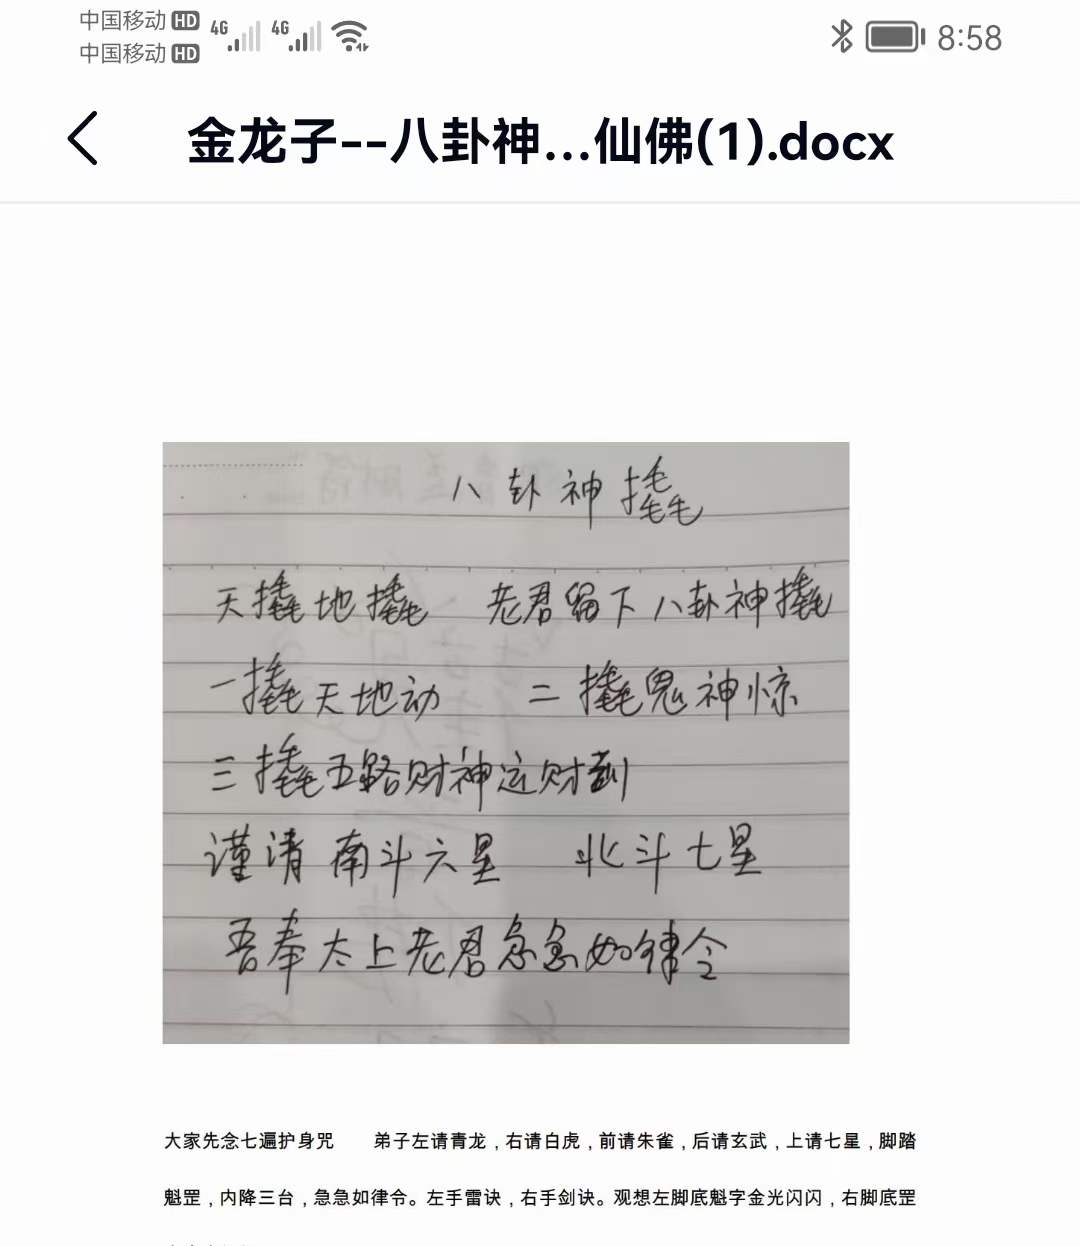 中国移动 HD 4G 4G 8:58
中国移动 HD
金龙子--八卦神...仙佛(1).docx
八卦神撬
天撬地撬 老君留下八卦神撬
一撬天地动 二撬鬼神惊
三撬五路财神运财到
谨请南斗六星 北斗七星
吾奉太上老君急急如律令
大家先念七遍护身咒 弟子左请青龙，右请白虎，前请朱雀，后请玄武，上请七星，脚踏
魁罡，内降三台，急急如律令。左手雷诀，右手剑诀。观想左脚底魁字金光闪闪，右脚底罡